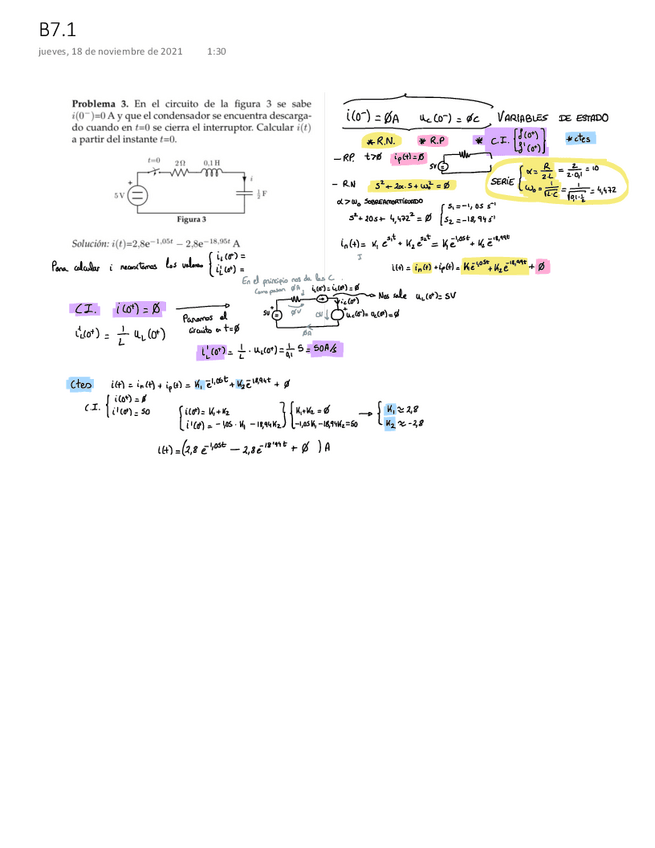 B7.1
jueves, 18 de noviembre de 2021 1:30
Problema 3. En el circuito de la figura 3 se sabe
i(0⁻)=0 A y que el condensador se encuentra descarga-
do cuando en t=0 se cierra el interruptor. Calcular i(t)
a partir del instante t=0.
t=0 2Ω 0,1 H
5 V + i ½ F
Figura 3
Solución: i(t)=2,8e^-1,05t − 2,8e^-18,95t A
i(0⁻) = ∅A uc(0⁻) = ∅C VARIABLES DE ESTADO
* R.N. * R.P * C.I. * ctes
– RP. t>0 ip(t)=∅ 5V
– RN s² + 2α·s + ω₀² = ∅
SERIE α = R/2·L = 2/2·0,1 = 10
ω₀ = 1/√L·C = 1/√0,1·½ = 4,472
α > ω₀ SOBREAMORTIGUADO
s² + 20s + 4,472² = ∅ s₁ = -1,05 s⁻¹
s₂ = -18,94 s⁻¹
in(t) = K₁ e^s₁t + K₂ e^s₂t = K₁ e^-1,05t + K₂ e^-18,94t
i(t) = in(t) + ip(t) = K₁ e^-1,05t + K₂ e^-18,94t + ∅
Para calcular i necesitamos los valores
En el principio nos da las C.
C.I. i(0⁺) = ∅
Ponemos el
circuito a t=0
5V ∅V Nos sale uL(0⁺) = 5V
iL'(0⁺) = 1/L uL(0⁺)
iL'(0⁺) = 1/L · uL(0⁺) = 1/0,1 5 = 50A/s
Ctes i(t) = in(t) + ip(t) = K₁ e^-1,05t + K₂ e^-18,94t + ∅
C.I. i(0⁺) = ∅
i'(0⁺) = 50
i(0⁺) = K₁ + K₂ K₁ + K₂ = ∅ → K₁ ≈ 2,8
i'(0⁺) = -1,05·K₁ - 18,94K₂ -1,05K₁ - 18,94K₂ = 50 K₂ ≈ -2,8
i(t) = (2,8 e^-1,05t − 2,8 e^-18'94t + ∅) A